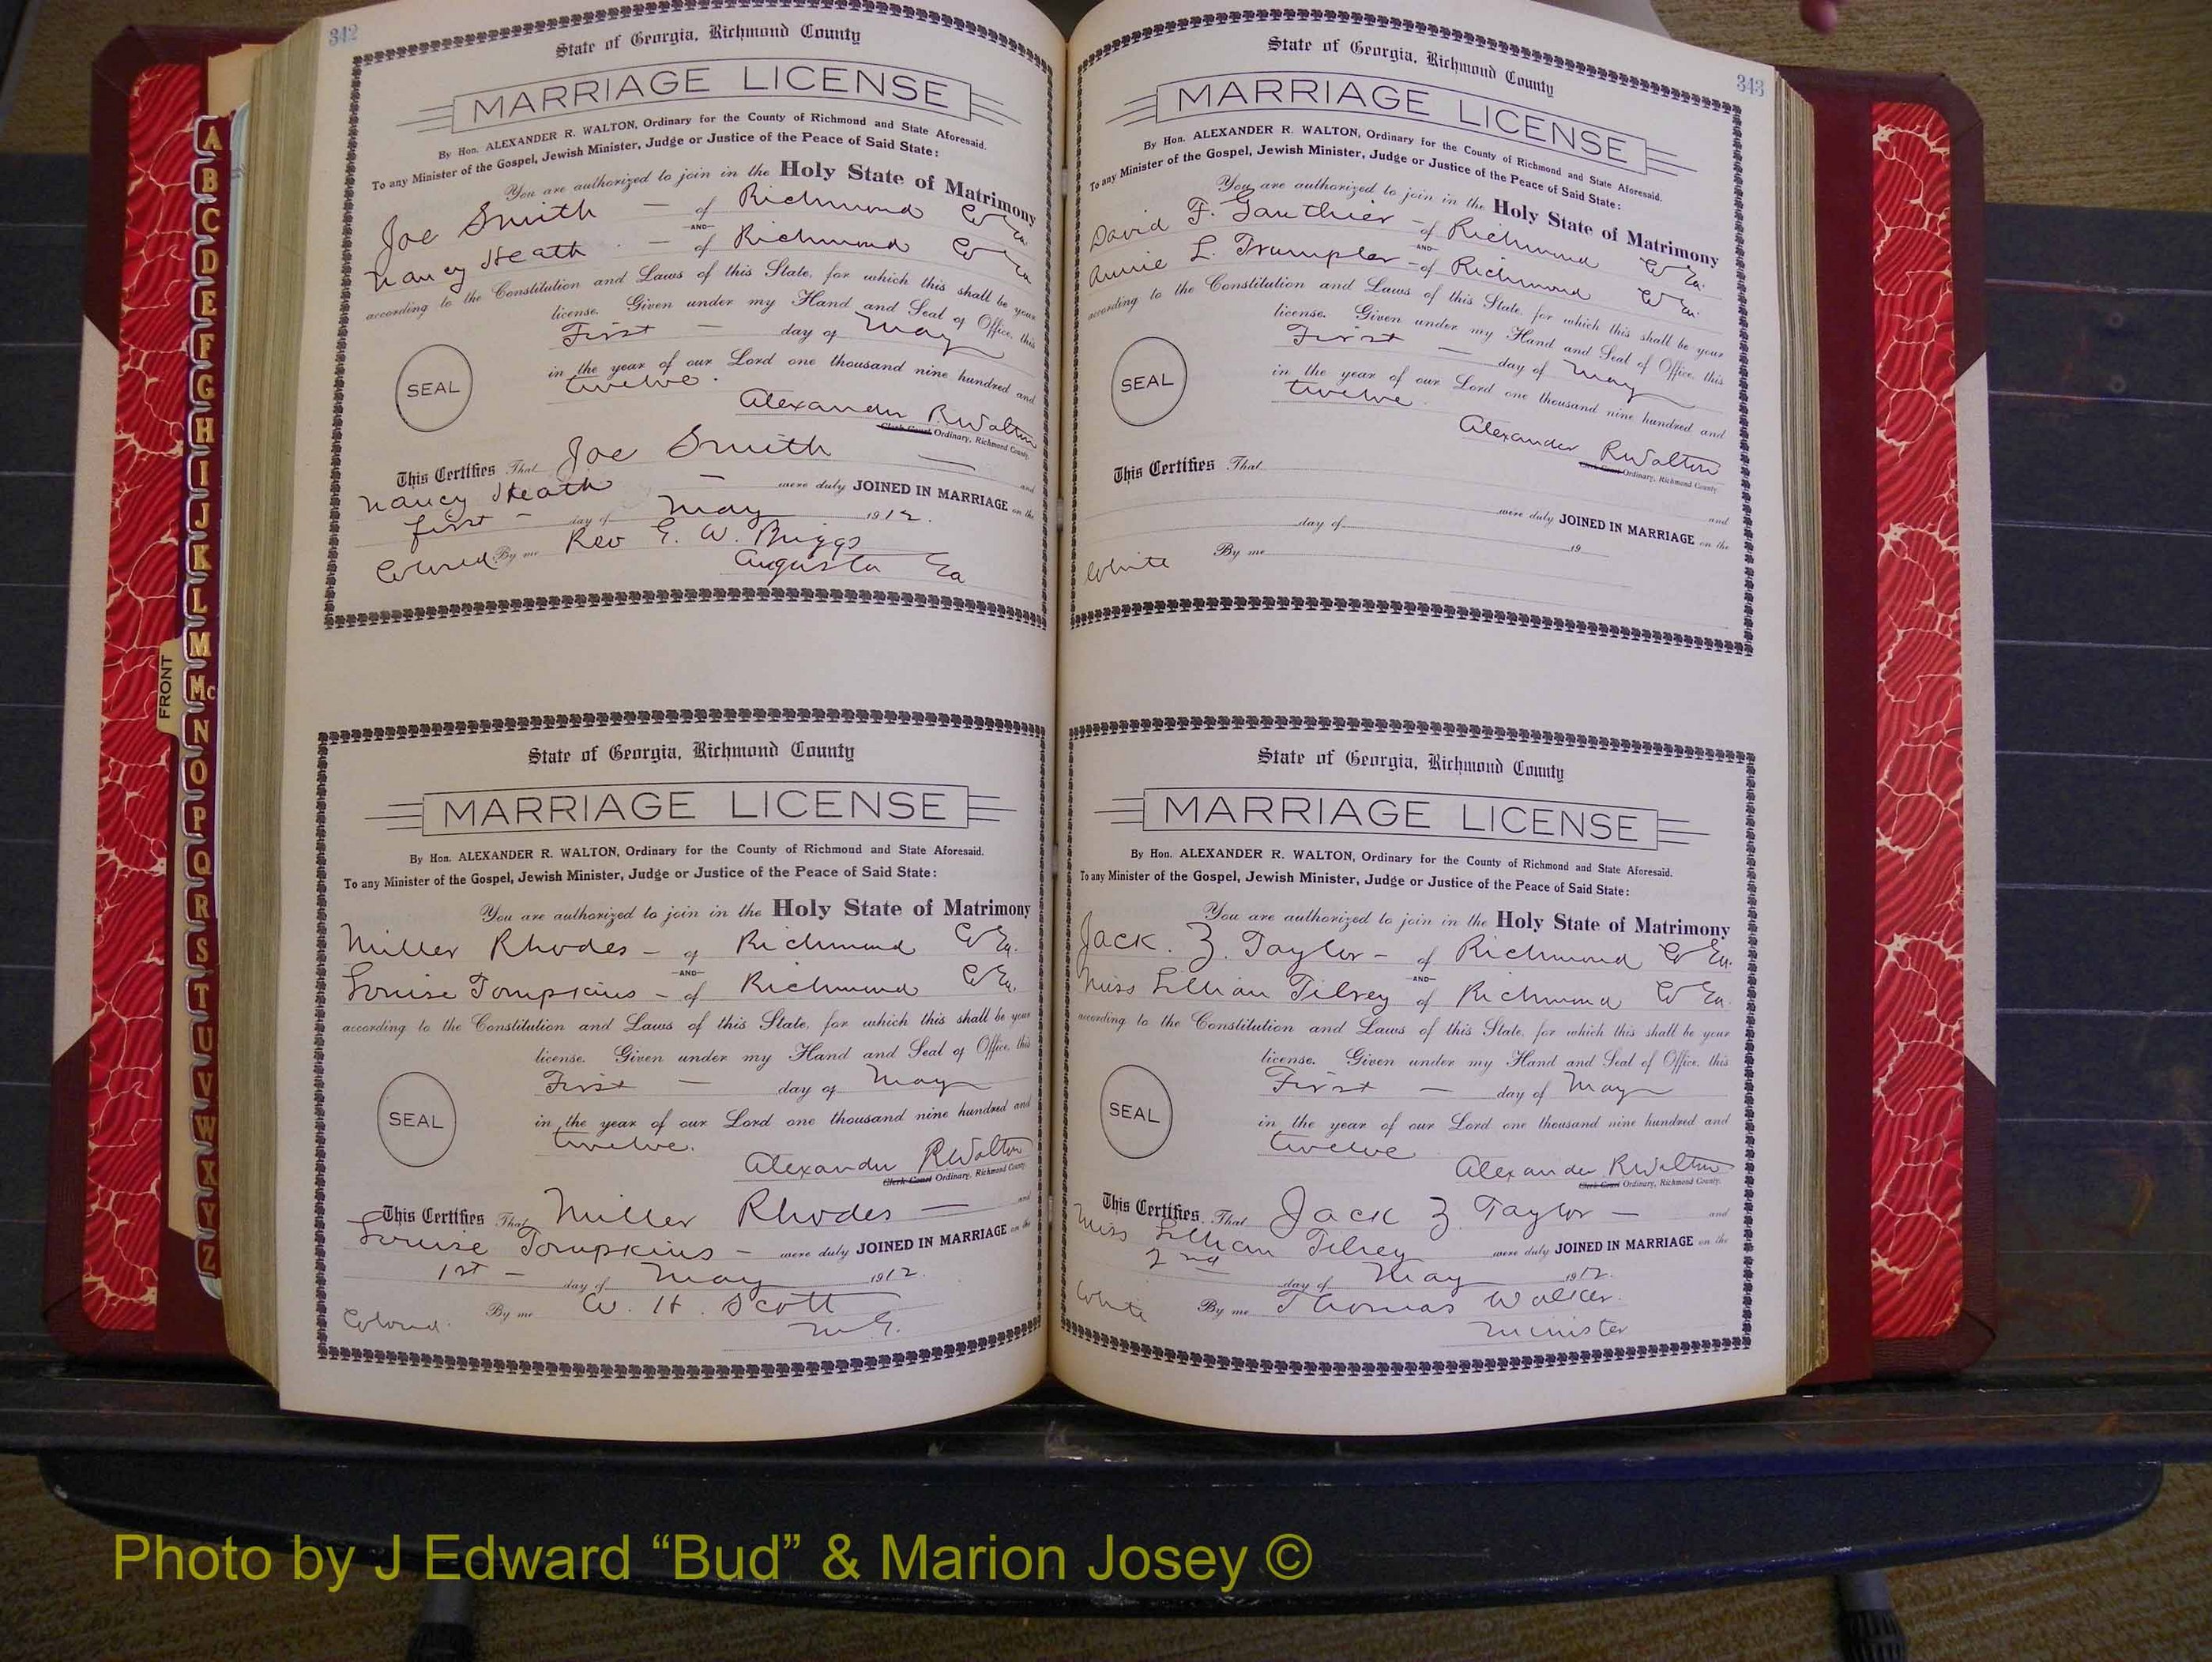 342
State of Georgia, Richmond County
MARRIAGE LICENSE
By Hon. ALEXANDER R. WALTON, Ordinary for the County of Richmond and State Aforesaid.
To any Minister of the Gospel, Jewish Minister, Judge or Justice of the Peace of Said State:
You are authorized to join in the Holy State of Matrimony
Joe Smith — of Richmond Co Ga
—AND—
Nancy Heath — of Richmond Co Ga
according to the Constitution and Laws of this State, for which this shall be your
license. Given under my Hand and Seal of Office, this
First — day of May
in the year of our Lord one thousand nine hundred and
twelve.
SEAL
Alexander R Walton
Clerk Court Ordinary, Richmond County.
This Certifies That Joe Smith — and
Nancy Heath — were duly JOINED IN MARRIAGE on the
first — day of May 1912.
Colored. By me Rev E. W. Briggs
Augusta Ga
State of Georgia, Richmond County
MARRIAGE LICENSE
By Hon. ALEXANDER R. WALTON, Ordinary for the County of Richmond and State Aforesaid.
To any Minister of the Gospel, Jewish Minister, Judge or Justice of the Peace of Said State:
You are authorized to join in the Holy State of Matrimony
Miller Rhodes — of Richmond Co Ga.
—AND—
Louise Tompkins — of Richmond Co Ga.
according to the Constitution and Laws of this State, for which this shall be your
license. Given under my Hand and Seal of Office, this
First — day of May
in the year of our Lord one thousand nine hundred and
twelve.
SEAL
Alexander R Walton
Clerk Court Ordinary, Richmond County.
This Certifies That Miller Rhodes — and
Louise Tompkins — were duly JOINED IN MARRIAGE on the
1st — day of May 1912.
Colored. By me W. H. Scott
M. G.
343
State of Georgia, Richmond County
MARRIAGE LICENSE
By Hon. ALEXANDER R. WALTON, Ordinary for the County of Richmond and State Aforesaid.
To any Minister of the Gospel, Jewish Minister, Judge or Justice of the Peace of Said State:
You are authorized to join in the Holy State of Matrimony
David F. Gauthier — of Richmond Co Ga.
—AND—
Annie L. Trumpler — of Richmond Co Ga.
according to the Constitution and Laws of this State, for which this shall be your
license. Given under my Hand and Seal of Office, this
First — day of May
in the year of our Lord one thousand nine hundred and
twelve
SEAL
Alexander R Walton
Clerk Court Ordinary, Richmond County
This Certifies That and
were duly JOINED IN MARRIAGE on the
day of 19
White By me
State of Georgia, Richmond County
MARRIAGE LICENSE
By Hon. ALEXANDER R. WALTON, Ordinary for the County of Richmond and State Aforesaid.
To any Minister of the Gospel, Jewish Minister, Judge or Justice of the Peace of Said State:
You are authorized to join in the Holy State of Matrimony
Jack. Z. Taylor — of Richmond Co Ga.
—AND—
Miss Lillian Tilrey of Richmond Co Ga.
according to the Constitution and Laws of this State, for which this shall be your
license. Given under my Hand and Seal of Office, this
First — day of May
in the year of our Lord one thousand nine hundred and
twelve
SEAL
Alexander R Walton
Clerk Court Ordinary, Richmond County.
This Certifies That Jack Z. Taylor — and
Miss Lillian Tilrey were duly JOINED IN MARRIAGE on the
2nd day of May 1912.
White By me Thomas Walker.
Minister
A
B
C
D
E
F
G
H
I
J
K
L
M
Mc
N
O
P
Q
R
S
T
U
V
W
X
Y
Z
FRONT
Photo by J Edward “Bud” & Marion Josey ©